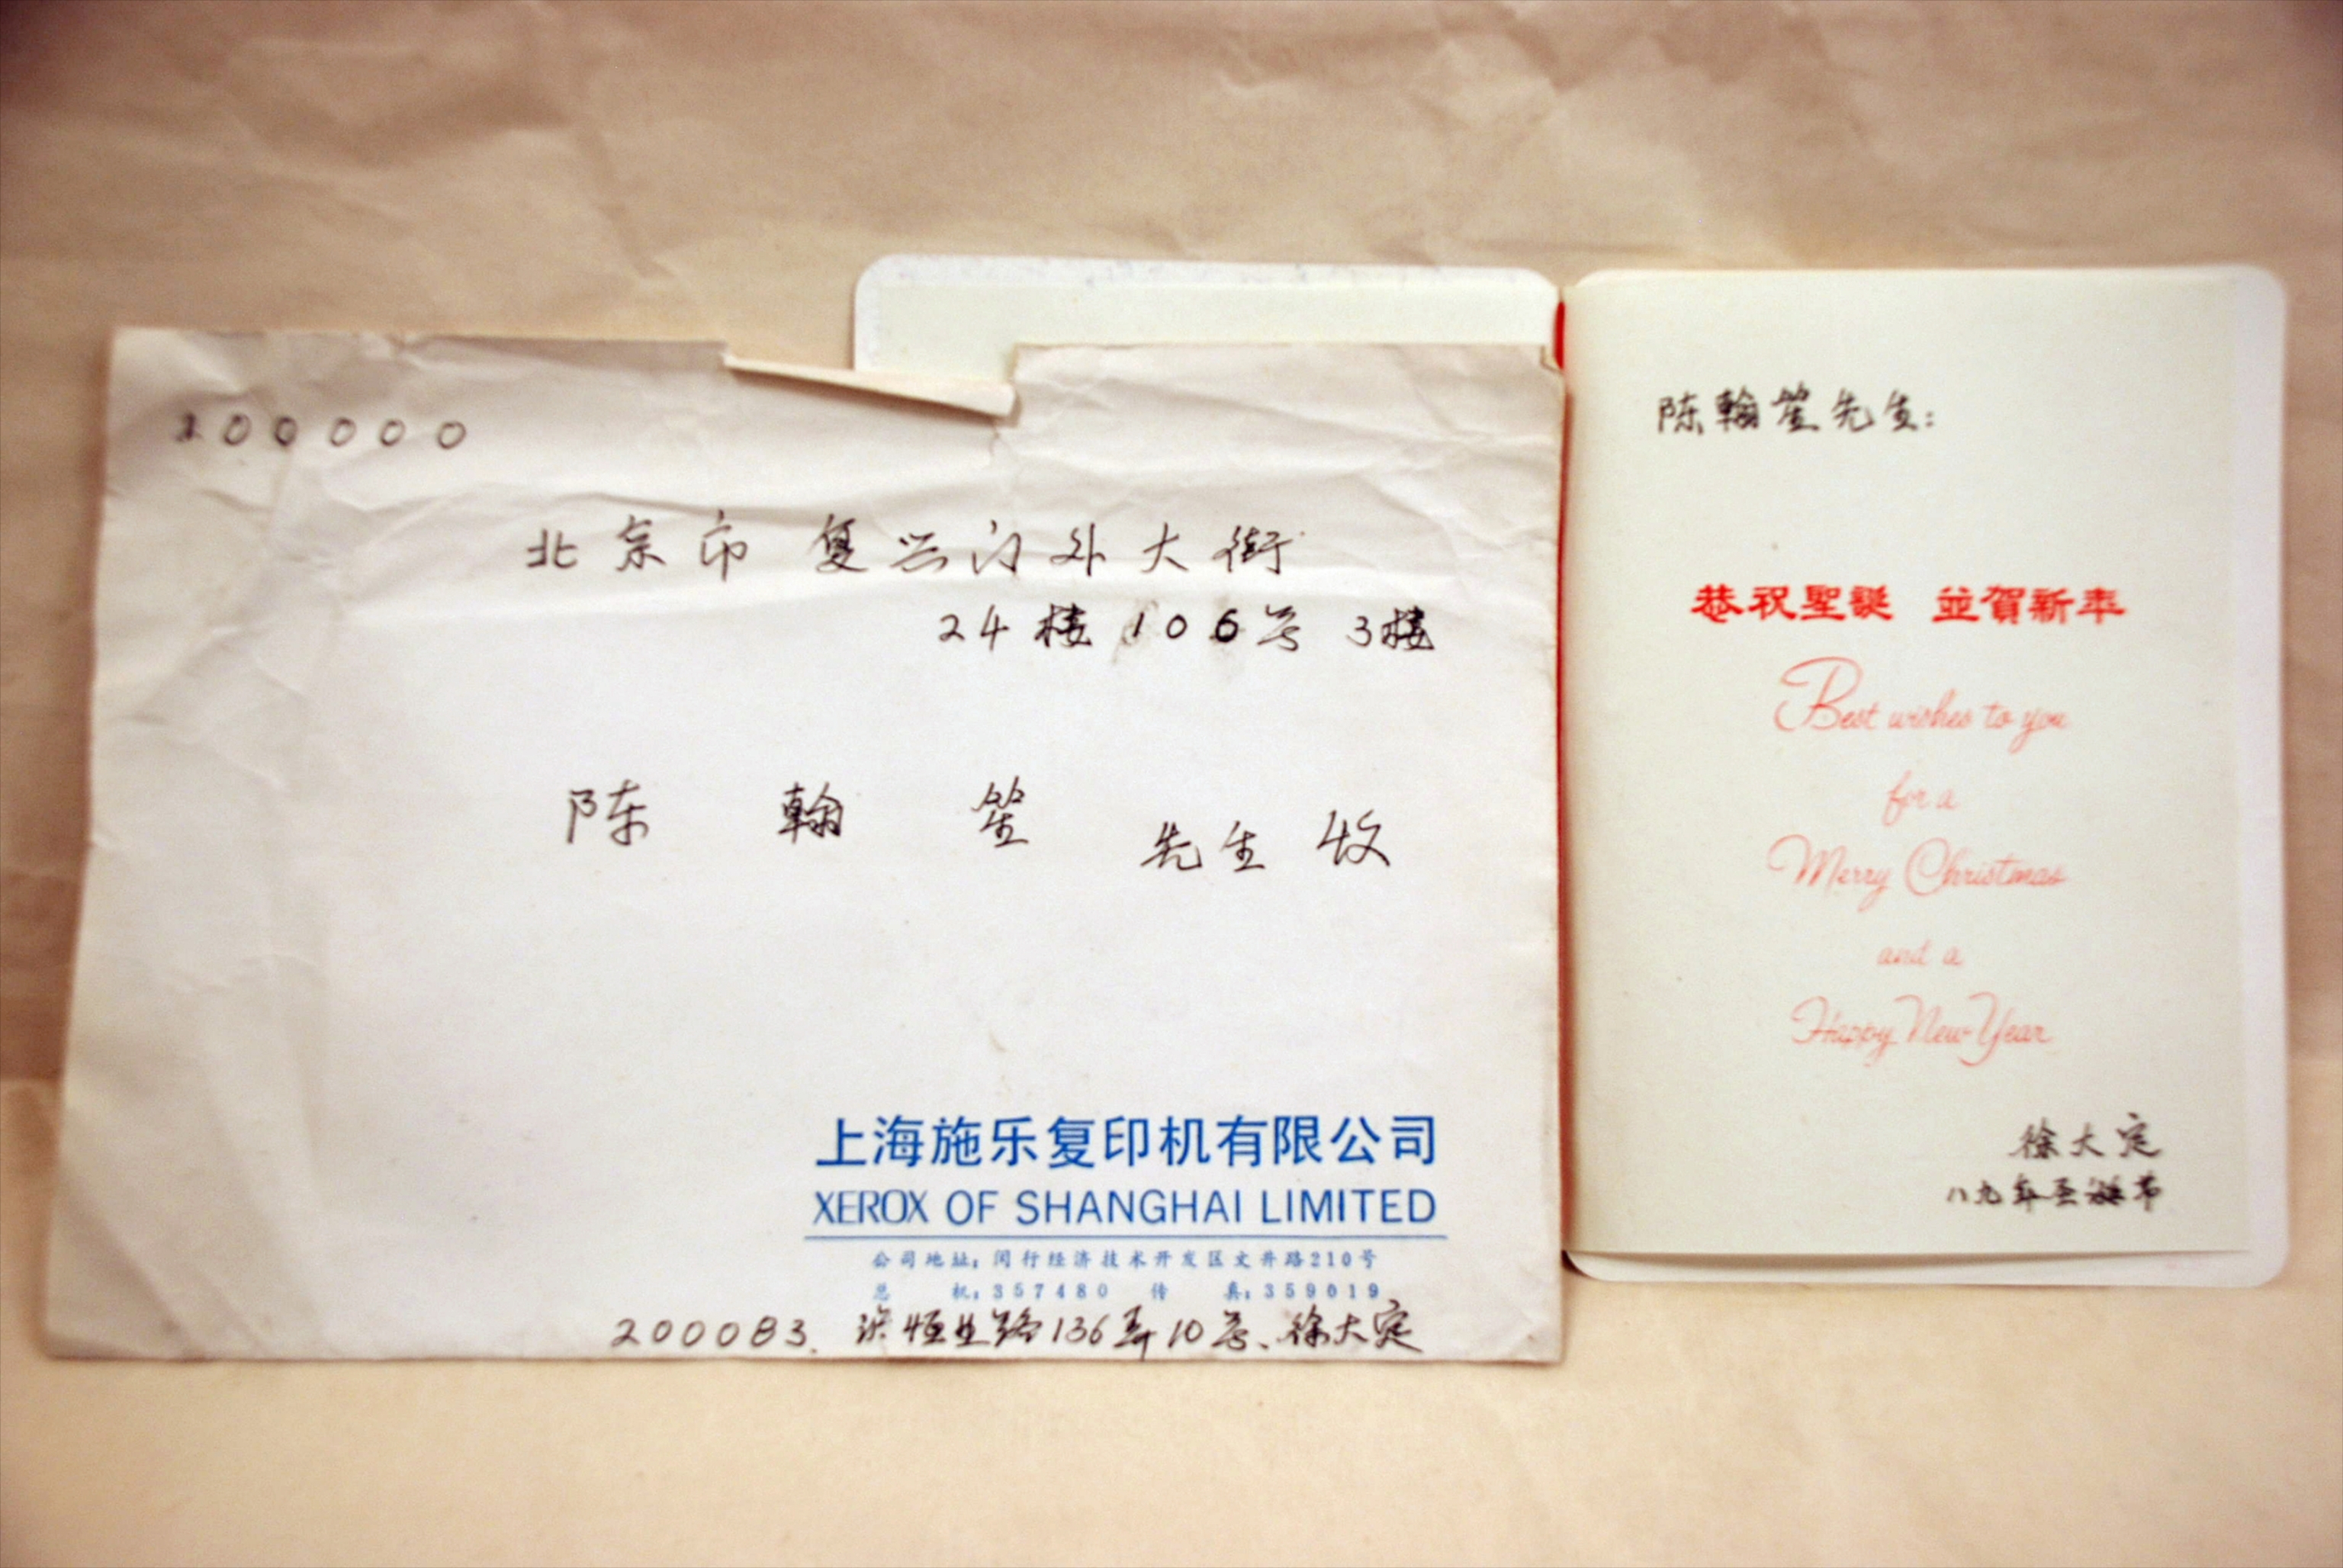 200000
北京市 复兴门外大街
24楼 106号 3楼
陈 翰 笙 先生 收
上海施乐复印机有限公司
XEROX OF SHANGHAI LIMITED
公司地址：闵行经济技术开发区文井路210号
总 机：357480 传 真：359019
200083. 恒业路136弄10号、徐大定
陈翰笙先生：
恭祝聖誕 並賀新年
Best wishes to you
for a
Merry Christmas
and a
Happy New Year
徐大定
八九年圣诞节